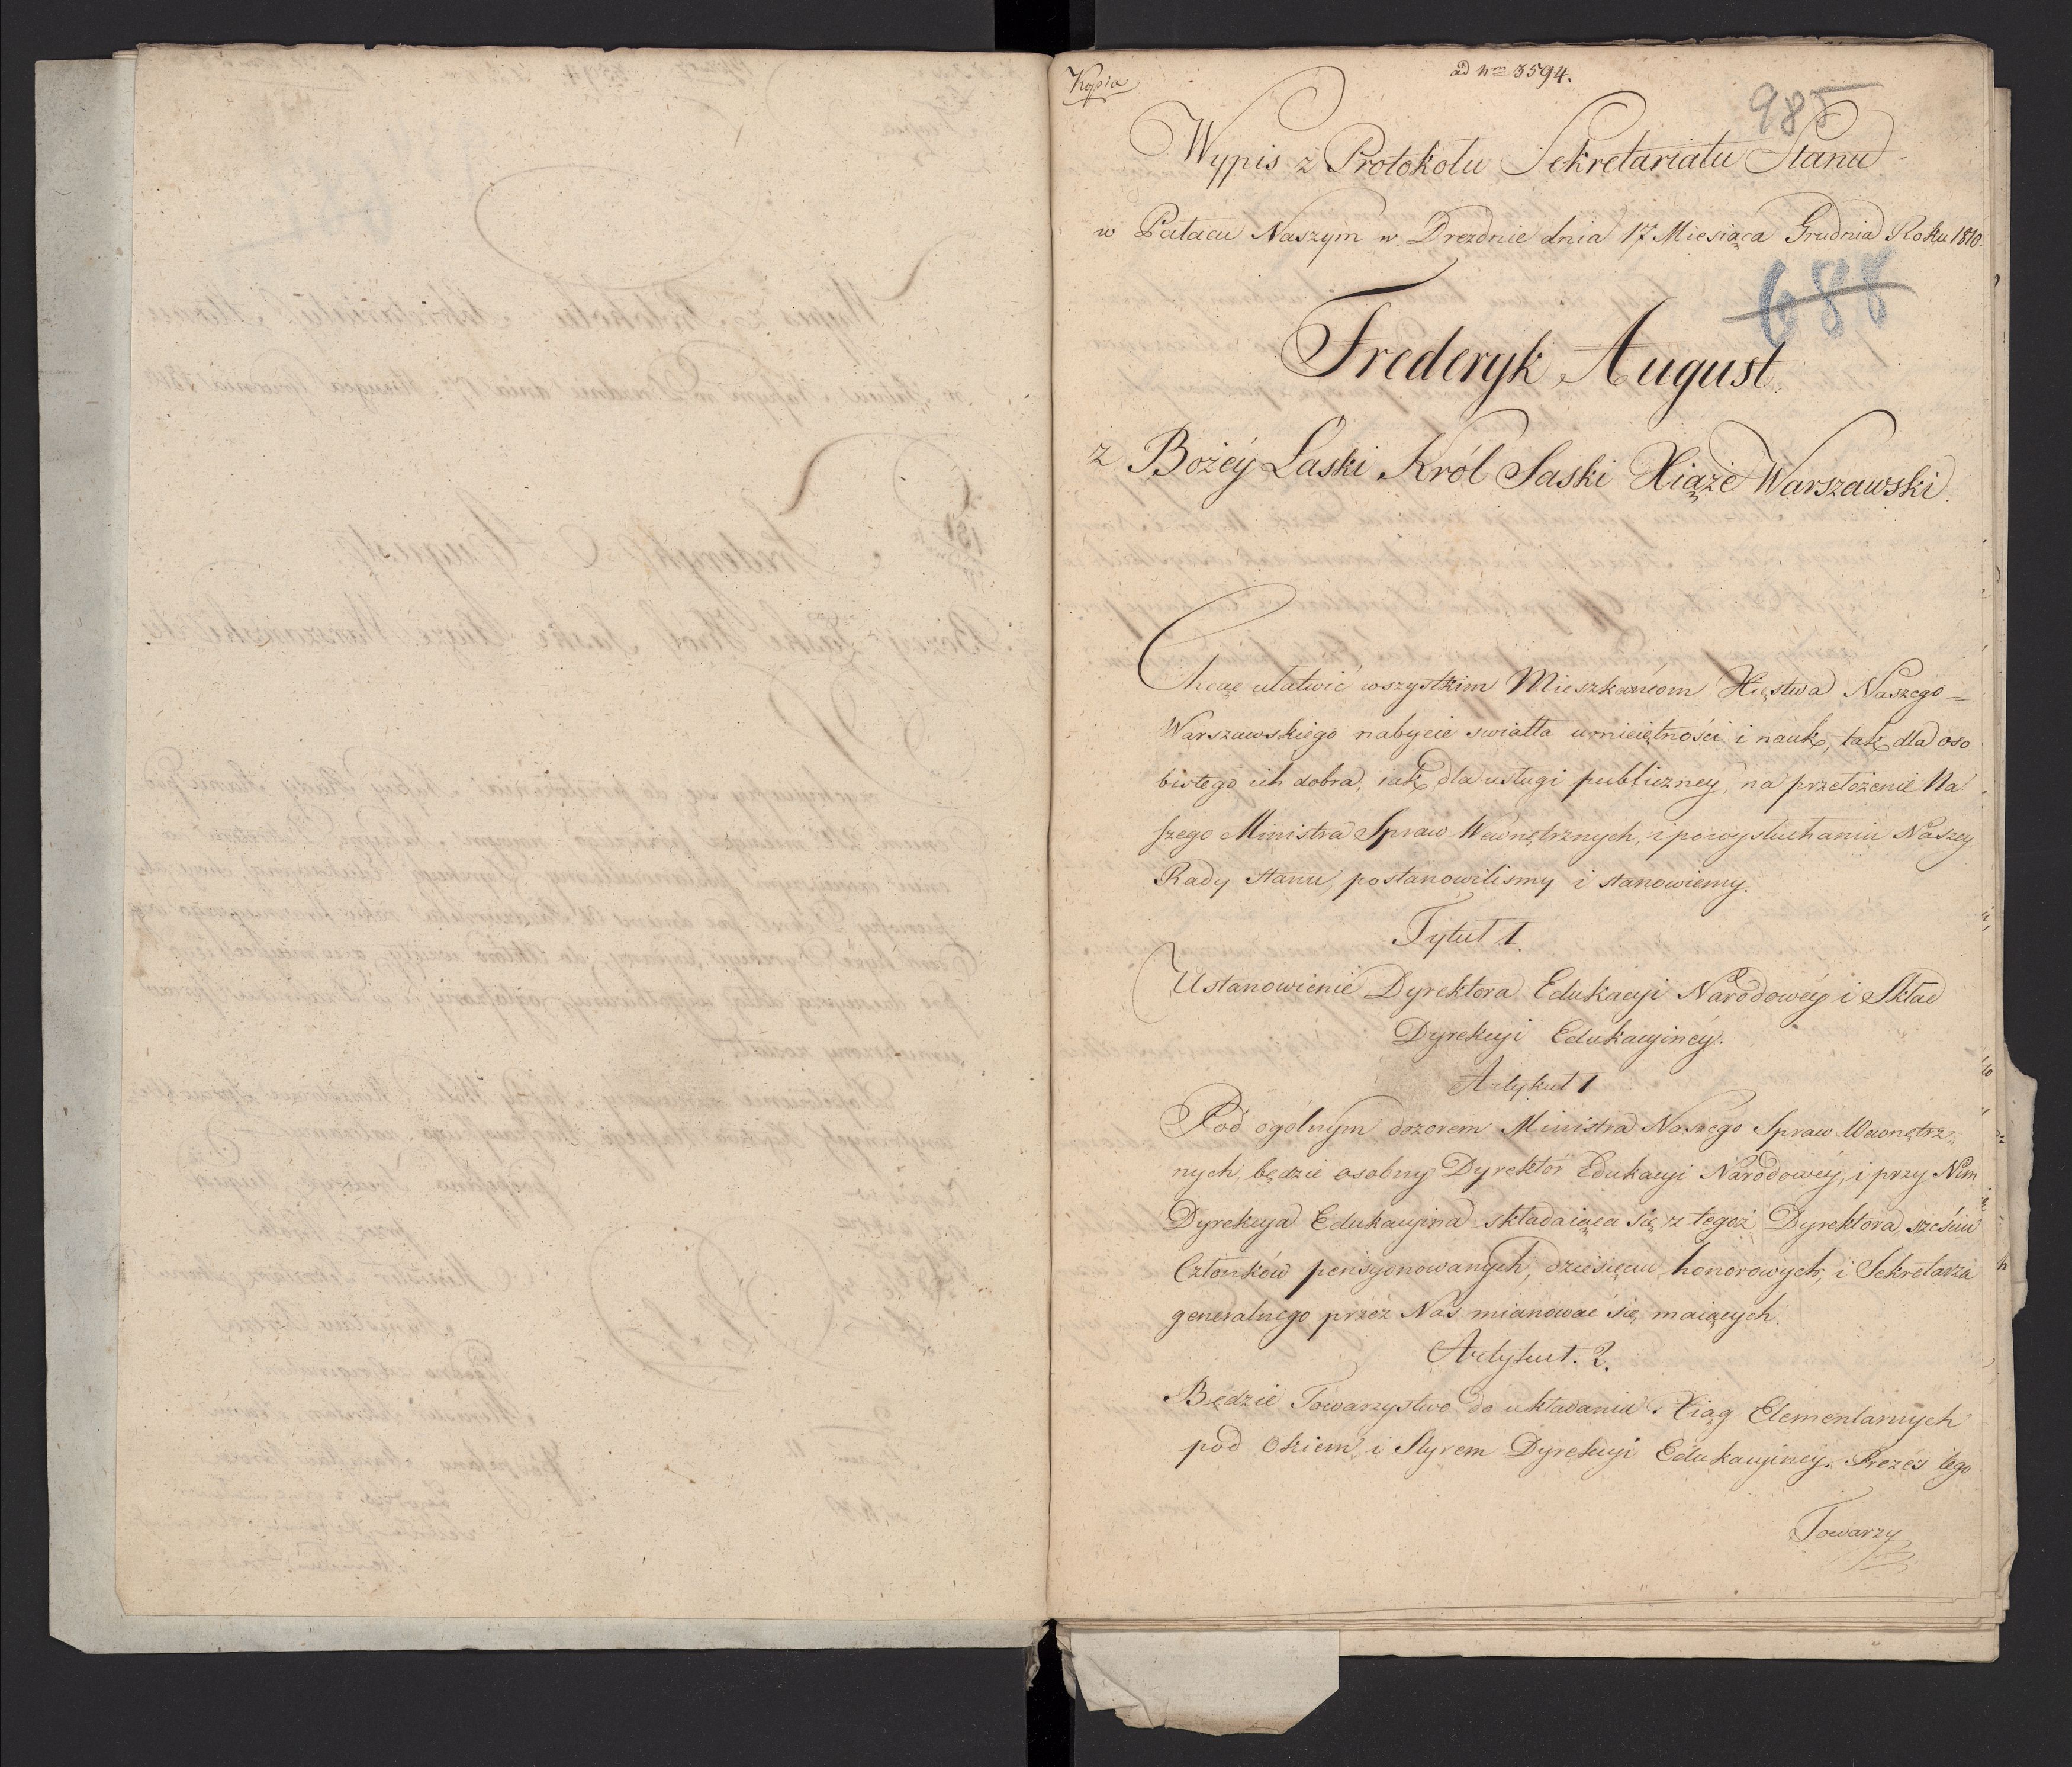 Kopia
ad nrm 3594.
985
Wypis z Protokołu Sekretariatu Stanu
w Pałacu Naszym w Dreznie dnia 17 Miesiąca Grudnia Roku 1810.
688
Frederyk August
z Bożéy Łaski Król Saski Xiąże Warszawski
Chcąc ułatwić wszystkim Mieszkańcom Xięstwa Naszego
Warszawskiego nabycie swiatła umieiętności i nauk, tak dla oso
bistego ich dobra, iak dla usługi publiczney, na przełożenie Na
szego Ministra Spraw Wewnętrznych, i po wysłuchaniu Naszey
Rady Stanu, postanowilismy i stanowiemy.
Tytuł 1.
Ustanowienie Dyrektora Edukacyi Narodowéy i Skład
Dyrekcyi Edukacyinéy.
Artykuł 1
Pod ogólnym dozorem Ministra Naszego Spraw Wewnętrz
nych, będzie osobny Dyrektor Edukacyi Narodowéy, i przy Nim
Dyrekcya Edukacyina składaiąca się z tegoż Dyrektora, sześciu
Członków pensyonowanych, dziesięciu honorowych, i Sekretarza
generalnego przez Nas mianować się maiących.
Artykuł. 2.
Będzie Towarzystwo do układania Xiąg Elementarnych
pod Okiem i Styrem Dyrekcyi Edukacyiney. Prezes tego
Towarzy